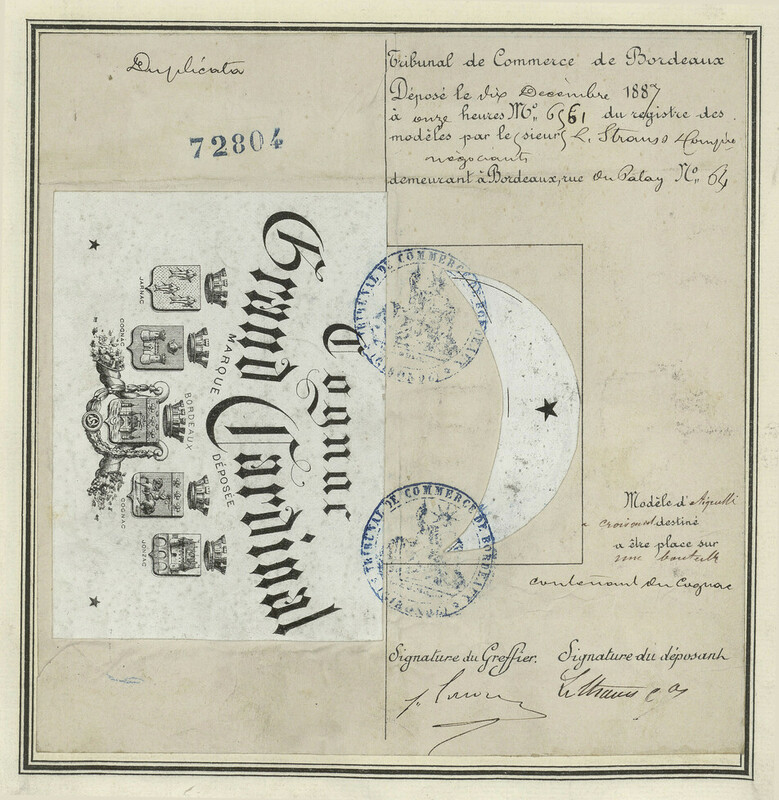 Duplicata
72804
Tribunal de Commerce de Bordeaux
Déposé le dix Decembre 1887
à onze heures No. 6561 du registre des
modèles par le sieur L. Strauss & Compie
négociants
demeurant à Bordeaux, rue du Palay No. 64
Cognac
Grand Cardinal
MARQUE DÉPOSÉE
JARNAC
COGNAC
BORDEAUX
COGNAC
JONZAC
TRIBUNAL DE COMMERCE DE BORDEAUX
TRIBUNAL DE COMMERCE DE BORDEAUX
Modèle d'
croissant destiné
a être place sur
une bouteille
contenant du Cognac
Signature du Greffier. Signature du déposant
L Strauss & Co